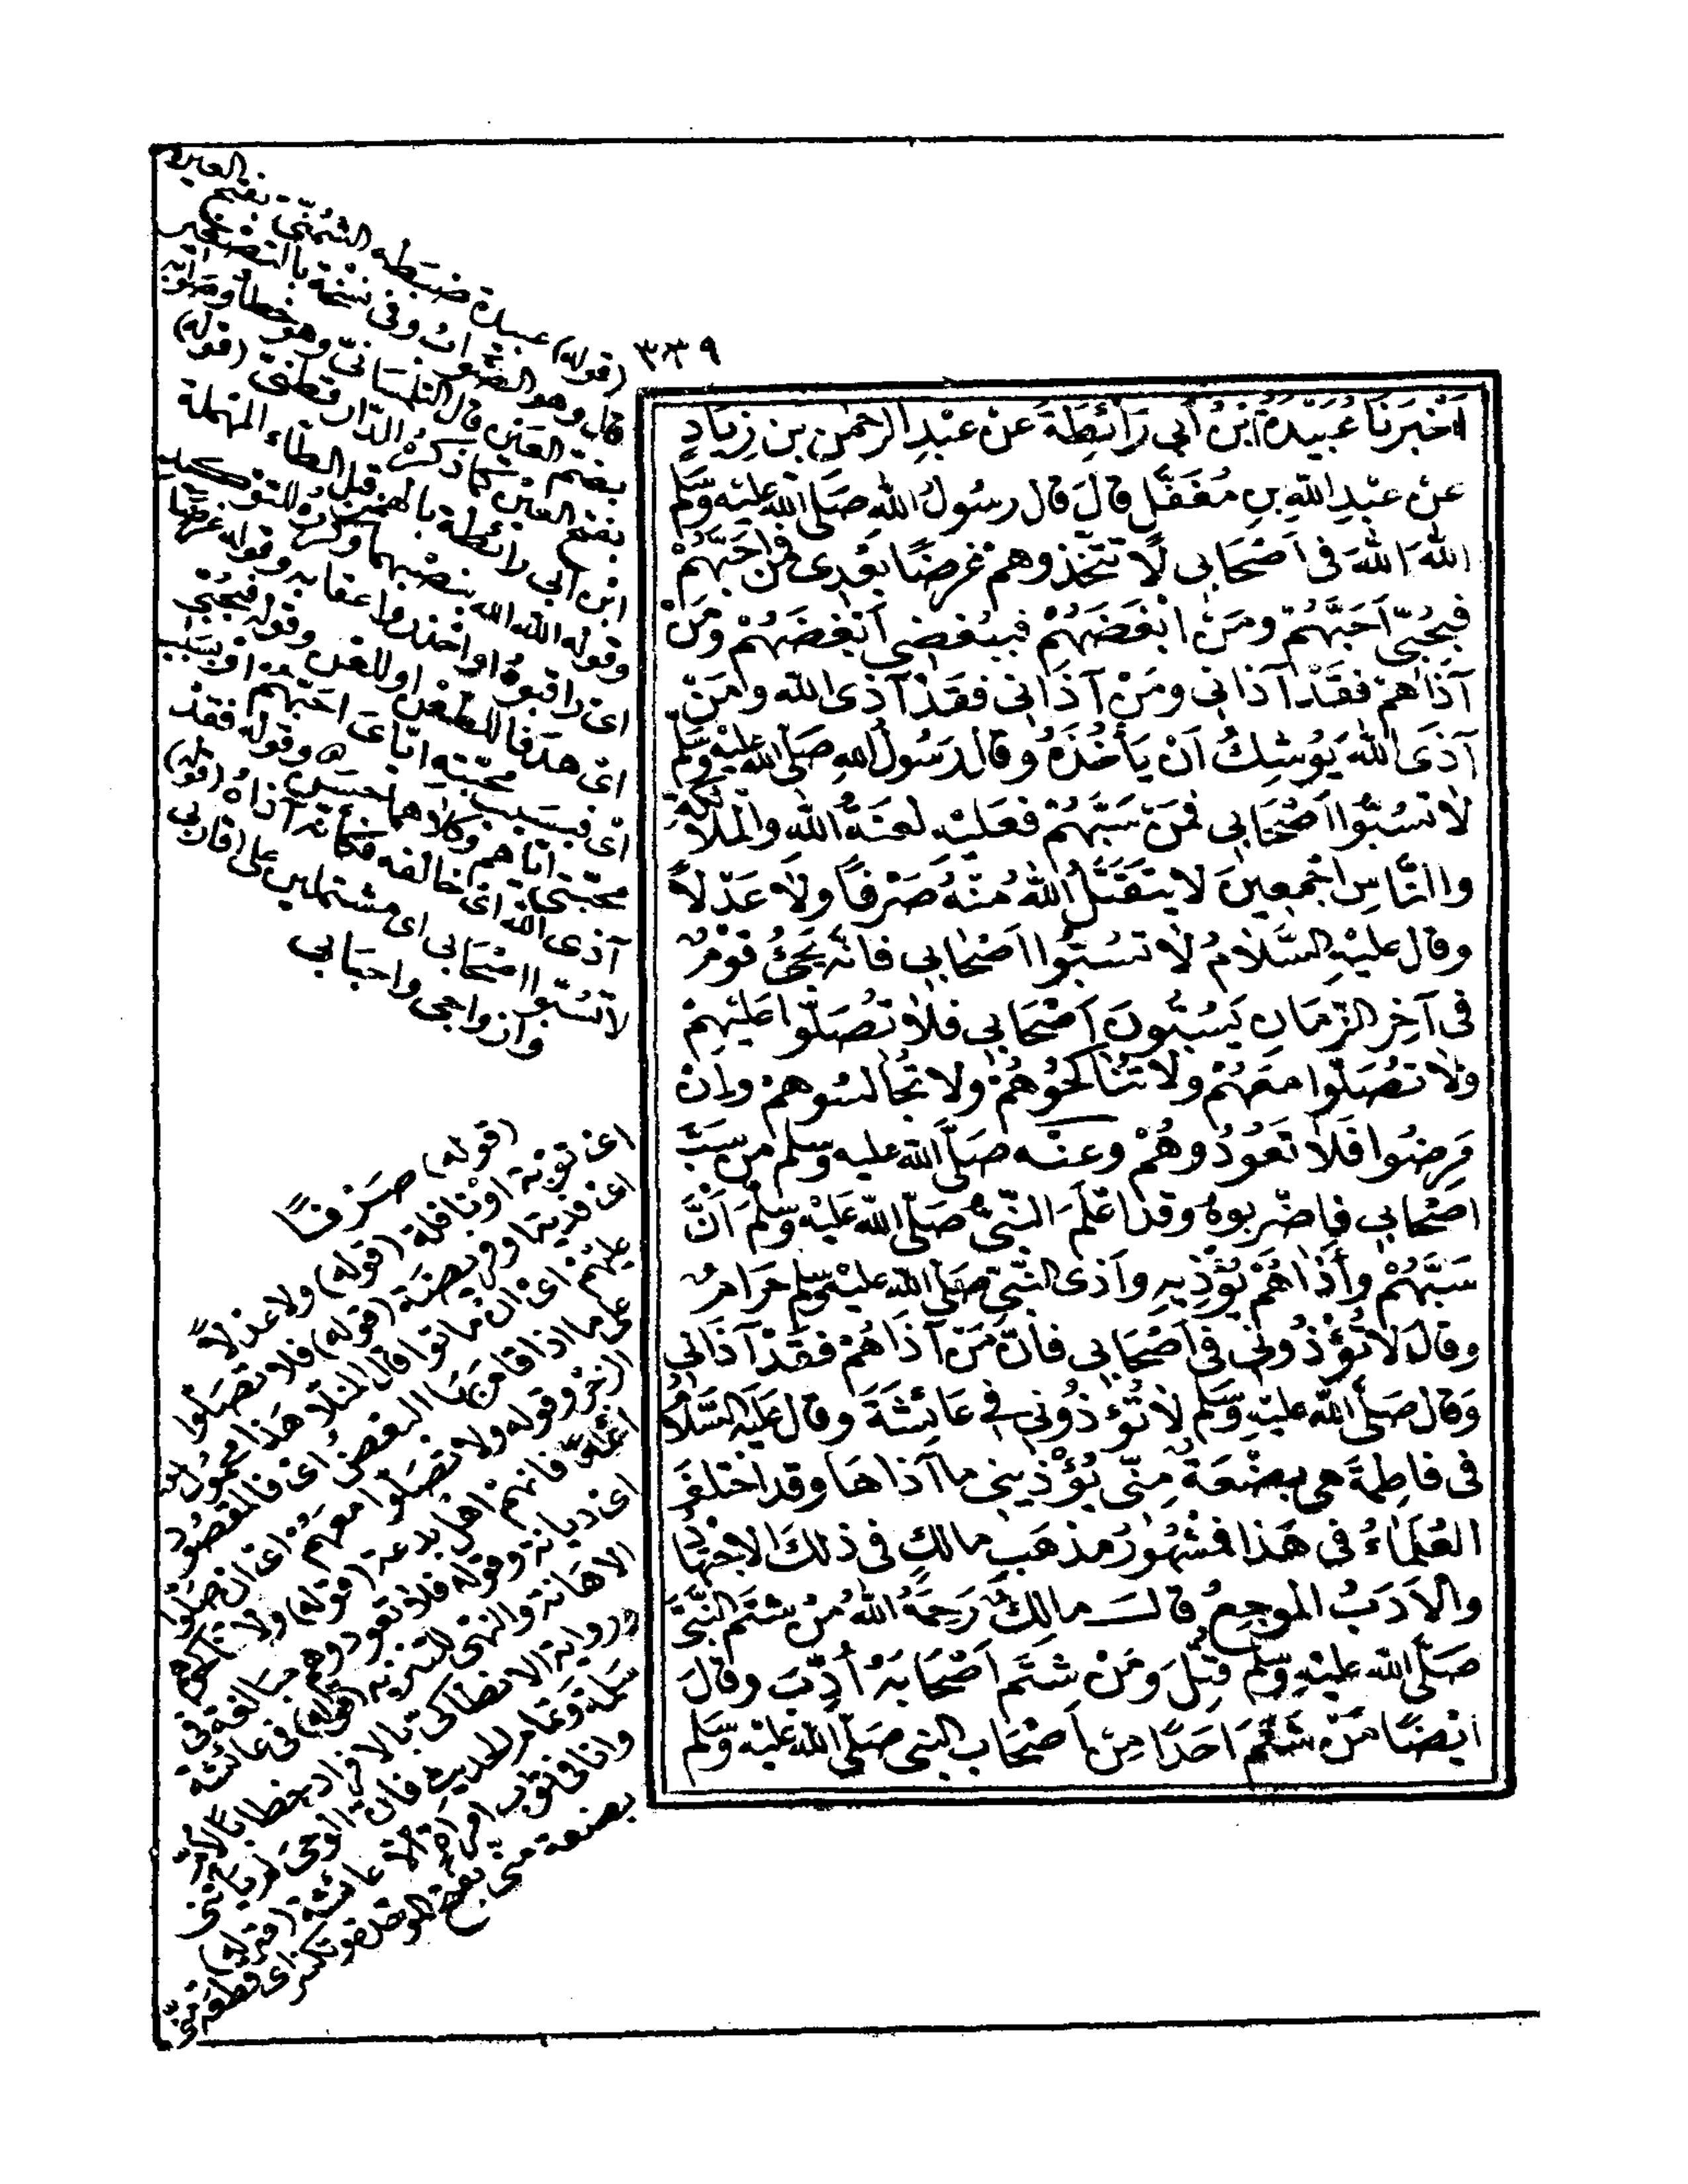 ٣٣٩
اَخْبَرَنَا عُبَيْدَةُ ابْنُ اَبِى رَائِطَةَ عَنْ عَبْدِ الرَّحْمٰنِ بنِ زِيَادٍ
عَنْ عَبْدِ اللّٰهِ بنِ مُغَفَّلٍ قَالَ قال رسُولُ اللّٰه صَلَّى اللّٰه عليْه وسَلّم
اللّٰهَ اللّٰهَ فى اَصْحَابى لَا تتَّخِذوهمْ غرضًا بَعْدِى فمن اَحَبَّهُمْ
فبِحُبّى اَحَبَّهُمْ ومَنْ ابْغَضَهُمْ فببُغضِى اَبْغَضَهُمْ ومَنْ
آذَاهُمْ فقَدْ آذَانى ومَنْ آذَانى فقَدْ آذى اللّٰه ومَنْ
آذَى اللّٰهَ يُوشِكُ اَنْ يَأخُذَهُ وقال رَسُولُ اللّٰهِ صَلَّى اللّٰه عليْهِ وسَلّم
لَا تَسُبُّوا اَصْحَابى فمَنْ سَبَّهُمْ فعَلَيْه لعْنَةُ اللّٰه والملائكة
والنَّاسِ اجْمعِينَ لا يتَقَبَّلُ اللّٰهُ مِنْهُ صَرْفاً ولَا عَدْلاً
وقال عليْهِ السَّلَامُ لَا تسُبُّوا اَصْحَابى فانَّه يَجِئُ قَوْمٌ
فى آخِرِ الزَّمانِ يَسُبُّونَ اَصْحَابى فلَا تُصَلّوا عَلَيْهِمْ
ولَا تُصَلّوا مَعَهُمْ ولَا تُنَاكِحُوهُمْ ولا تُجَالسُوهمْ وإنْ
مَرِضُوا فَلَا تَعُودُوهُمْ وعنْه صَلَّى اللّٰه عليه وسَلّم من سَبَّ
اصْحَابى فاضْربوهُ وقدْ اعْلَمَ النَّبىُّ صَلَّى اللّٰه عَلَيْه وسَلّمَ اَنَّ
سَبَّهُمْ وأَذَاهُمْ يُؤْذِيهِ وأَذَى النَّبىّ صَلَّى اللّٰه عليْه وسَلّم حَرَامٌ
وقالَ لَا تُؤْذُونى فى اَصْحَابى فانّ مَنْ آذَاهُمْ فقَدْ آذَانى
وَقال صَلَّى اللّٰه عليْهِ وسَلّم لَا تُؤْذُونى فى عَائِشَةَ وقال عَلَيْه السَّلَامُ
فى فاطِمَةَ هى بضْعَةٌ مِنّى يُؤْذِينى ما آذاهَا وقد اخْتلفَ
العُلَمَاءُ فى هَذا فمَشْهُورُ مذهَبِ مالكٍ فى ذلكَ الاجتهادُ
والاَدَبُ الموجِعُ قالَ مالكٌ رَحِمَهُ اللّٰهُ مَنْ شتَمَ النَّبىَّ
صَلَّى اللّٰه عليْهِ وسَلّم قُتِلَ ومَنْ شتَم اَصْحَابَهُ أُدِّبَ وقالَ
ايْضًا مَنْ شَتَمَ اَحَدًا مِنْ اَصْحَاب النبى صَلَّى اللّٰه عليْه وسَلّم
(قوله) عبيدة ضبَطه الشُمُنّى بفتح العين
قال وهو الصَّوابُ وفى نسْخة بالتصْغير
بفتح العيْن قال التلمسَانىّ وهو خطأ وصَوابه
بفتح العيْن كما ذكرهُ الدّارقطنىّ (قوله)
ابن ابى رائطة بالهمْز قبل الطاء المهْملة
وقوله اللّٰه اللّٰه بنصْبهما وكررهُ للتوْكيد
اى راقبوهُ او احْذروا عقابه وقوله غرضًا
اى هدَفا للطعْن او للعْن وقوله فبحُبّى
اى فبسَبب محبّته ايّاى احَبّهم او بسَبب
محبّتى ايّاهم وكلاهما حسَن وقوله فقدْ
آذى اللّٰه اى خالفه فكأنّه آذاهُ (قوله)
لا تسُبّوا اصْحَابى اى مشتملين على اقاربى
وازواجى واحبَابى
(قوله) صَرْفًا
اىْ توْبة اوْ نافلة (قوله) ولا عدْلاً
اىْ فدْية او فريضَة (قوله) فلا تصَلّوا
عليْهم اىْ ان ماتوا قال المنلا هَذا محْمُول
على ما اذا قام بها البعْض اى فالمقصُود
الزجْر وقوله ولا تصَلّوا معَهمْ اىْ ان صَلّوا
ائمّة فانهمْ اهْل بدعة (قوله) ولا تناكحوهمْ
اى ديانة وقوله فلا تعُودوهمْ مبَالغة فى
الاهانة والنهْى للتنزيه (قوله) فى عائشة
ورواية الانطاكىّ بالافراد خطابا لامّ
سَلمة وتمامر الحديث فان الوحْى لم ياتنى
وانا فى ثوْب امْرأة الّا عائشة (قوله)
بضْعة منّى بفتح الموحّدة وتكسَر اى قطعة منّى